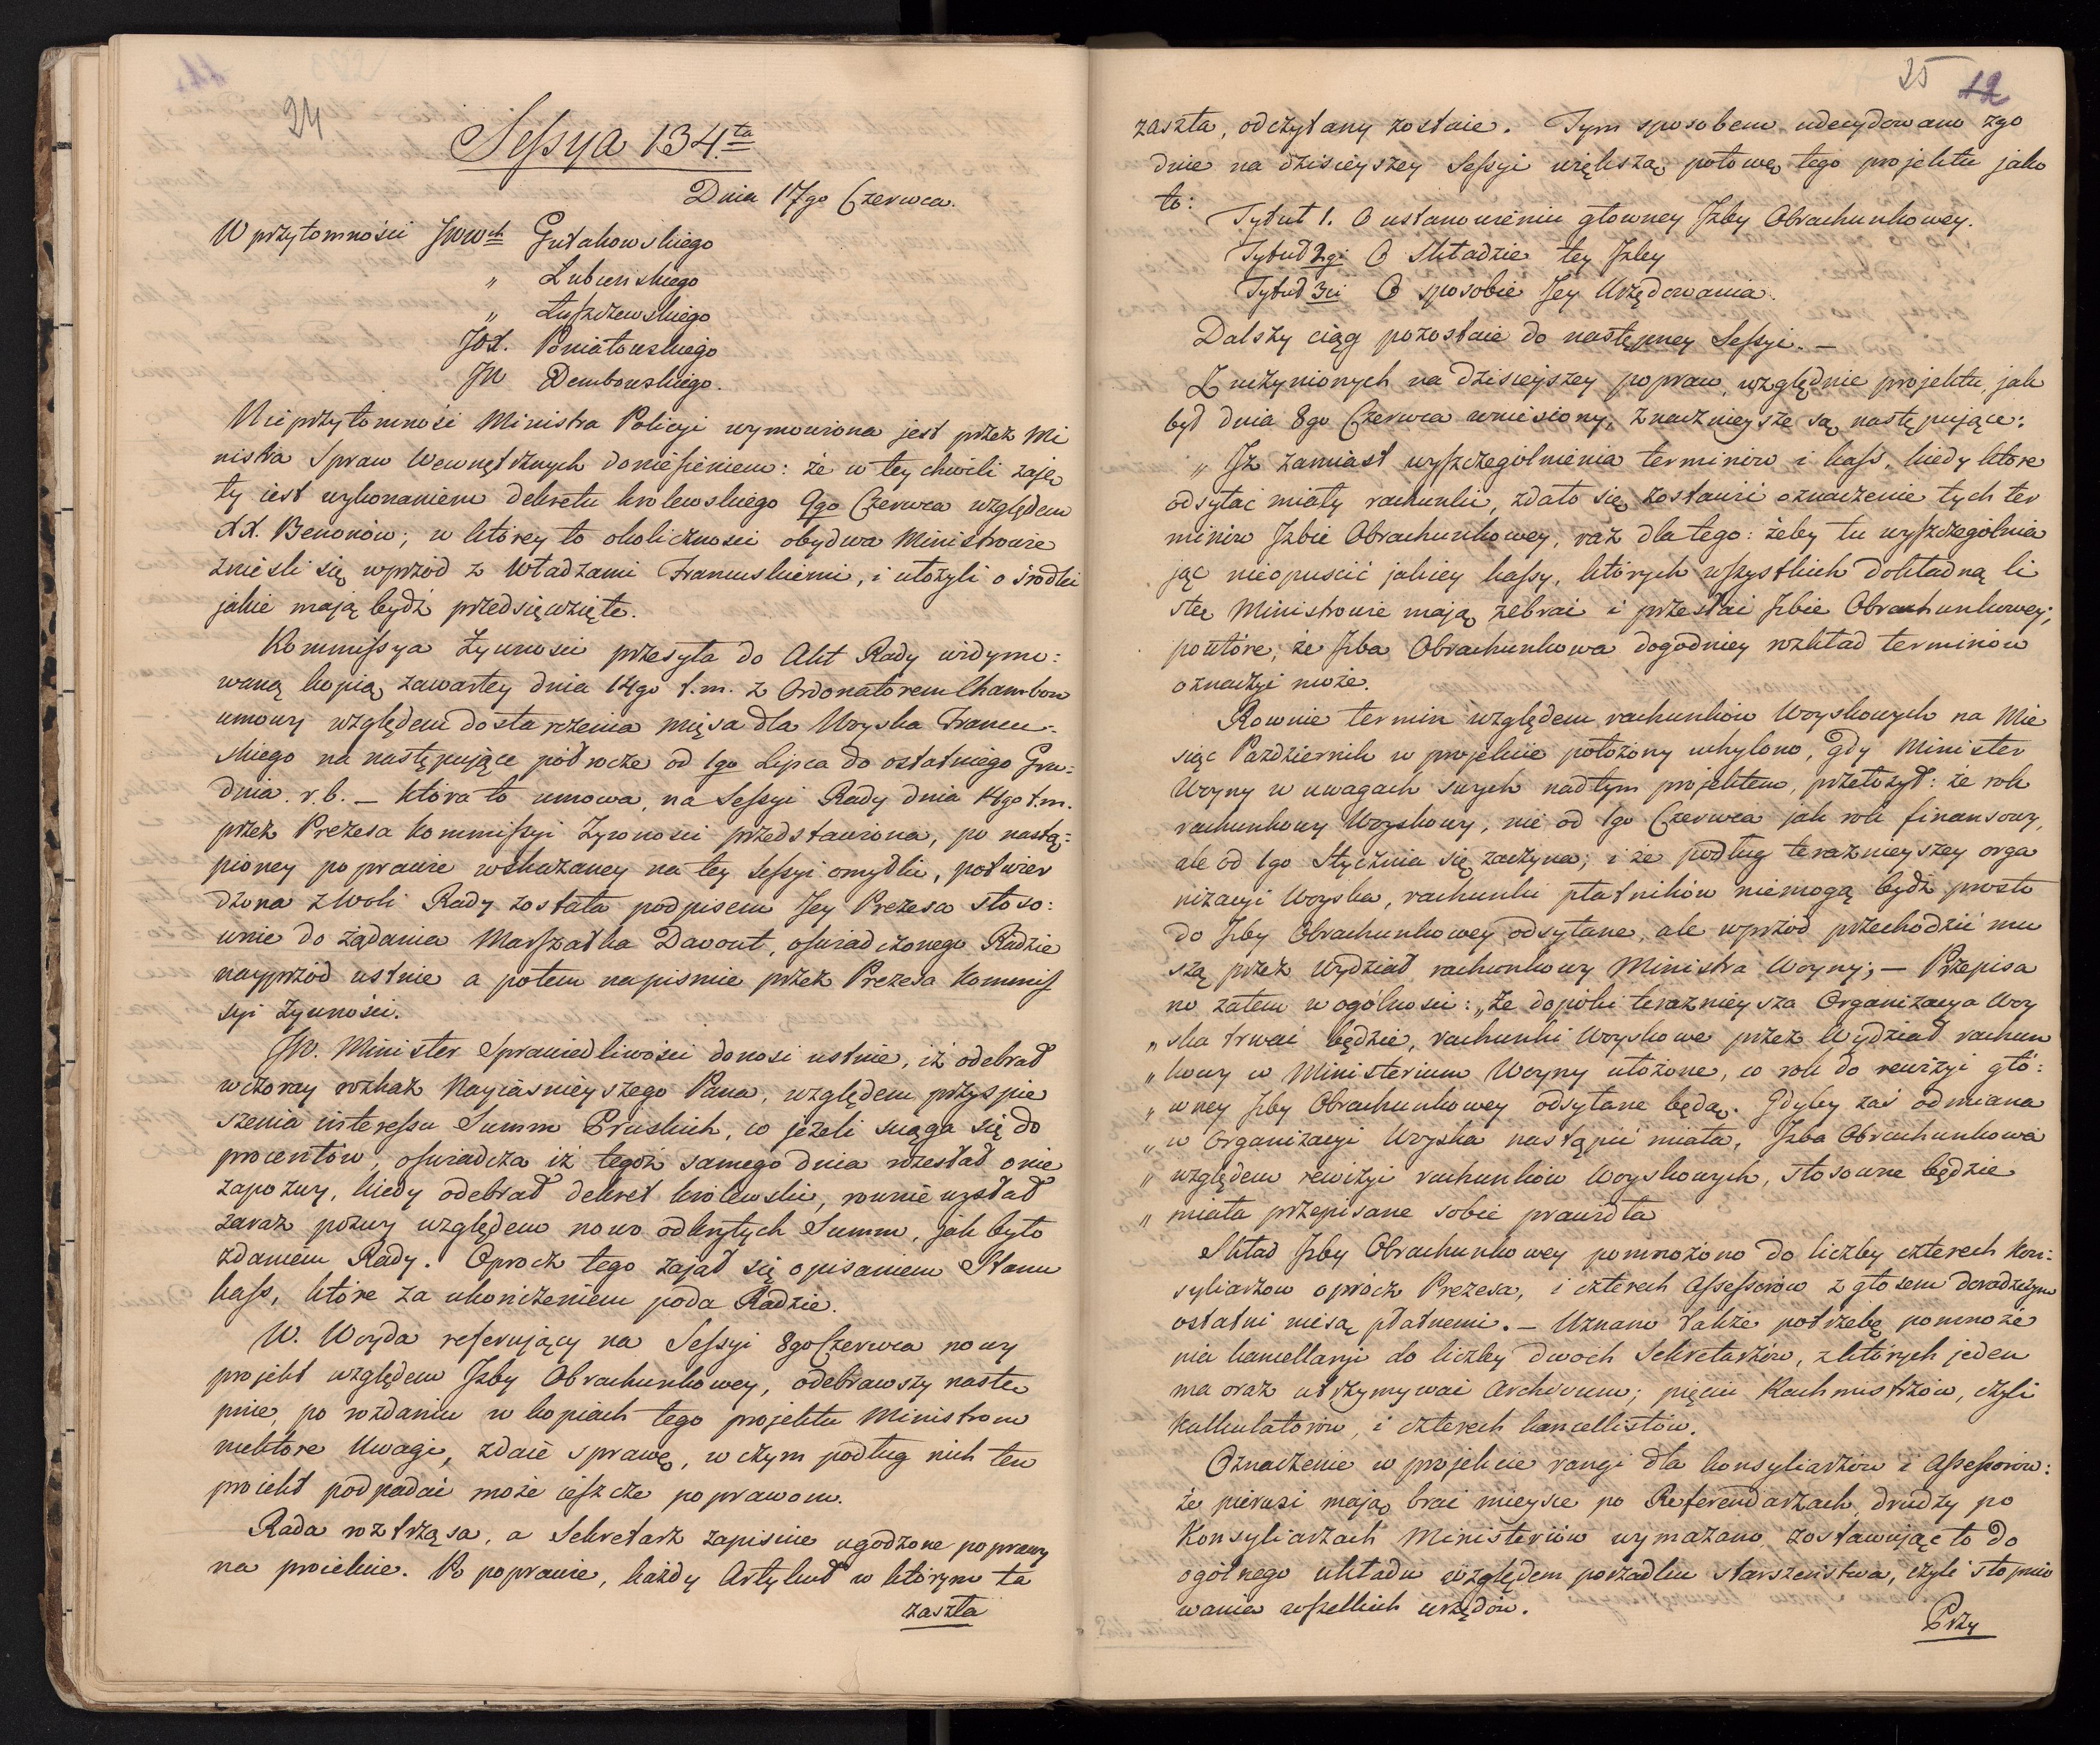 24
Sessya 134.ta
Dnia 17go Czerwca.
W przytomności JWWch Gutakowskiego
„ Lubieńskiego
„ Łuszczewskiego
JOX. Poniatowskiego
JW Dembowskiego.
Nieprzytomność Ministra Policyi wymowiona jest przez Mi
nistra Spraw Wewnętrznych doniesieniem: że w tey chwili zaję
ty iest wykonaniem dekretu krolewskiego 9go Czerwca względem
XX. Benonów; w którey to okoliczności obydwa Ministrowie
znieśli się wprzód z Władzami Francuskiemi, i ułożyli o środki
jakie mają bydź przedsięwzięte.
Kommissya Żywności przesyła do Akt Rady widymo:
waną kopią zawartey dnia 14go t.m. z Ordonatorem Chambon
umowy względem dostarczenia mięsa dla Woyska Francu-
skiego na następujące półrocze od 1go Lipca do ostatniego Gru:
dnia r.b. – która to umowa, na Sessyi Rady dnia 14go t.m.
przez Prezesa Kommissyi Żywności przedstawiona, po nastą:
pioney poprawie wskazaney na tey Sessyi omyłki, potwier
dzona z woli Rady została podpisem Jey Prezesa stoso:
wnie do żądania Marszałka Davout, oświadczonego Radzie
nayprzód ustnie a potem napismie przez Prezesa Kommis
syi Żywności.
JW. Minister Sprawiedliwości donosi ustnie, iż odebrał
wczoray rozkaz Nayiaśnieyszego Pana, względem przyspie
szenia interessu Summ Pruskich, co jeżeli ściąga się do
procentów, oświadcza iż tegoż samego dnia rozesłał onie
zapozwy, kiedy odebrał dekret krolewski, rownie wysłał
zaraz pozwy względem nowo odkrytych Summ, jak było
zdaniem Rady. Oprocz tego zajął się opisaniem Stanu
kass, które za ukończeniem poda Radzie.
W. Woyda referujący na Sessyi 8go Czerwca nowy
projekt względem Izby Obrachunkowey, odebrawszy nastę
pnie, po rozdaniu w kopiach tego projektu Ministrom
niektóre Uwagi, zdaie sprawę, w czym podług nich ten
proiekt podpadać może ieszcze poprawom.
Rada roztrząsa, a Sekretarz zapisuie ugodzone poprawy
na proiekcie. Po poprawie, każdy Artykuł w którym ta
zaszła
25 12
zaszła, odczytany zostaie. Tym sposobem udecydowano zgo
dnie na dzisieyszey Sessyi większą połowę tego projektu jako
to:
Tytuł 1. O ustanowieniu głowney Izby Obrachunkowey.
Tytuł 2gi O Składzie tey Izby
Tytuł 3ci O sposobie Jey Urzędowania.
Dalszy ciąg pozostaie do następney Sessyi. –
Z uczynionych na dzisiejszey popraw, względnie projektu, jak
był dnia 8go Czerwca wniesiony, znacznieysze są następujące:
„ Iż zamiast wyszczególnienia terminów i kass, kiedy które
odsyłać miały rachunki, zdało się zostawić oznaczenie tych ter
minów Izbie Obrachunkowey, raz dla tego: żeby tu wyszczególnia
jąc nieopuscić jakiey kassy, których wszystkich dokładną li
stę Ministrowie mają zebrać i przesłać Izbie Obrachunkowey;
powtóre, że Izba Obrachunkowa dogodniey rozkład terminów
oznaczyć może.
Rownie termin względem rachunków Woyskowych na Mie
siąc Pazdziernik w projekcie położony uchylono, gdy Minister
Woyny w uwagach swych nad tym projektem, przełożył: że rok
rachunkowy Woyskowy, nie od 1go Czerwca jak rok finansowy,
ale od 1go Stycznia się zaczyna; i że podług teraznieyszey orga
nizacyi Woyska, rachunki płatników niemogą bydź prosto
do Izby Obrachunkowey odsyłane, ale wprzód przechodzić mu
szą przez wydział rachunkowy Ministra Woyny; – Przepisa
no zatem w ogólności: „Że dopóki teraznieysza Organizacya Woy
„ska trwać będzie, rachunki Woyskowe przez Wydział rachun
„kowy w Ministerium Woyny ułożone, co rok do rewizyi głó:
„wney Izby Obrachunkowey odsyłane będą. Gdyby zaś odmiana
„w Organizacyi Woyska nastąpić miała, Izba Obrachunkowa
„względem rewizyi rachunków Woyskowych, stosowne będzie
„miała przepisane sobie prawidła
Skład Izby Obrachunkowey pomnożono do liczby czterech Kon:
syliarzow oprócz Prezesa, i czterech Assessorów z głosem doradczym
ostatni niesą płatnemi. – Uznano także potrzebę pomnoże
nia kancellaryi do liczby dwoch Sekretarzów, z których jeden
ma oraz utrzymywać Archivum; pięciu Rachmistrzów, czyli
Kalkulatorów, i czterech kancellistów.
Oznaczenie w projekcie rangi dla konsyliarzów i Assessorów:
że pierwsi mają brać mieysce po Referendarzach, drudzy po
Konsyliarzach Ministeriów wymazano, zostawując to do
ogólnego układu względem porządku starszeństwa, czyli stopnio
wania wszelkich urzędów.
Przy